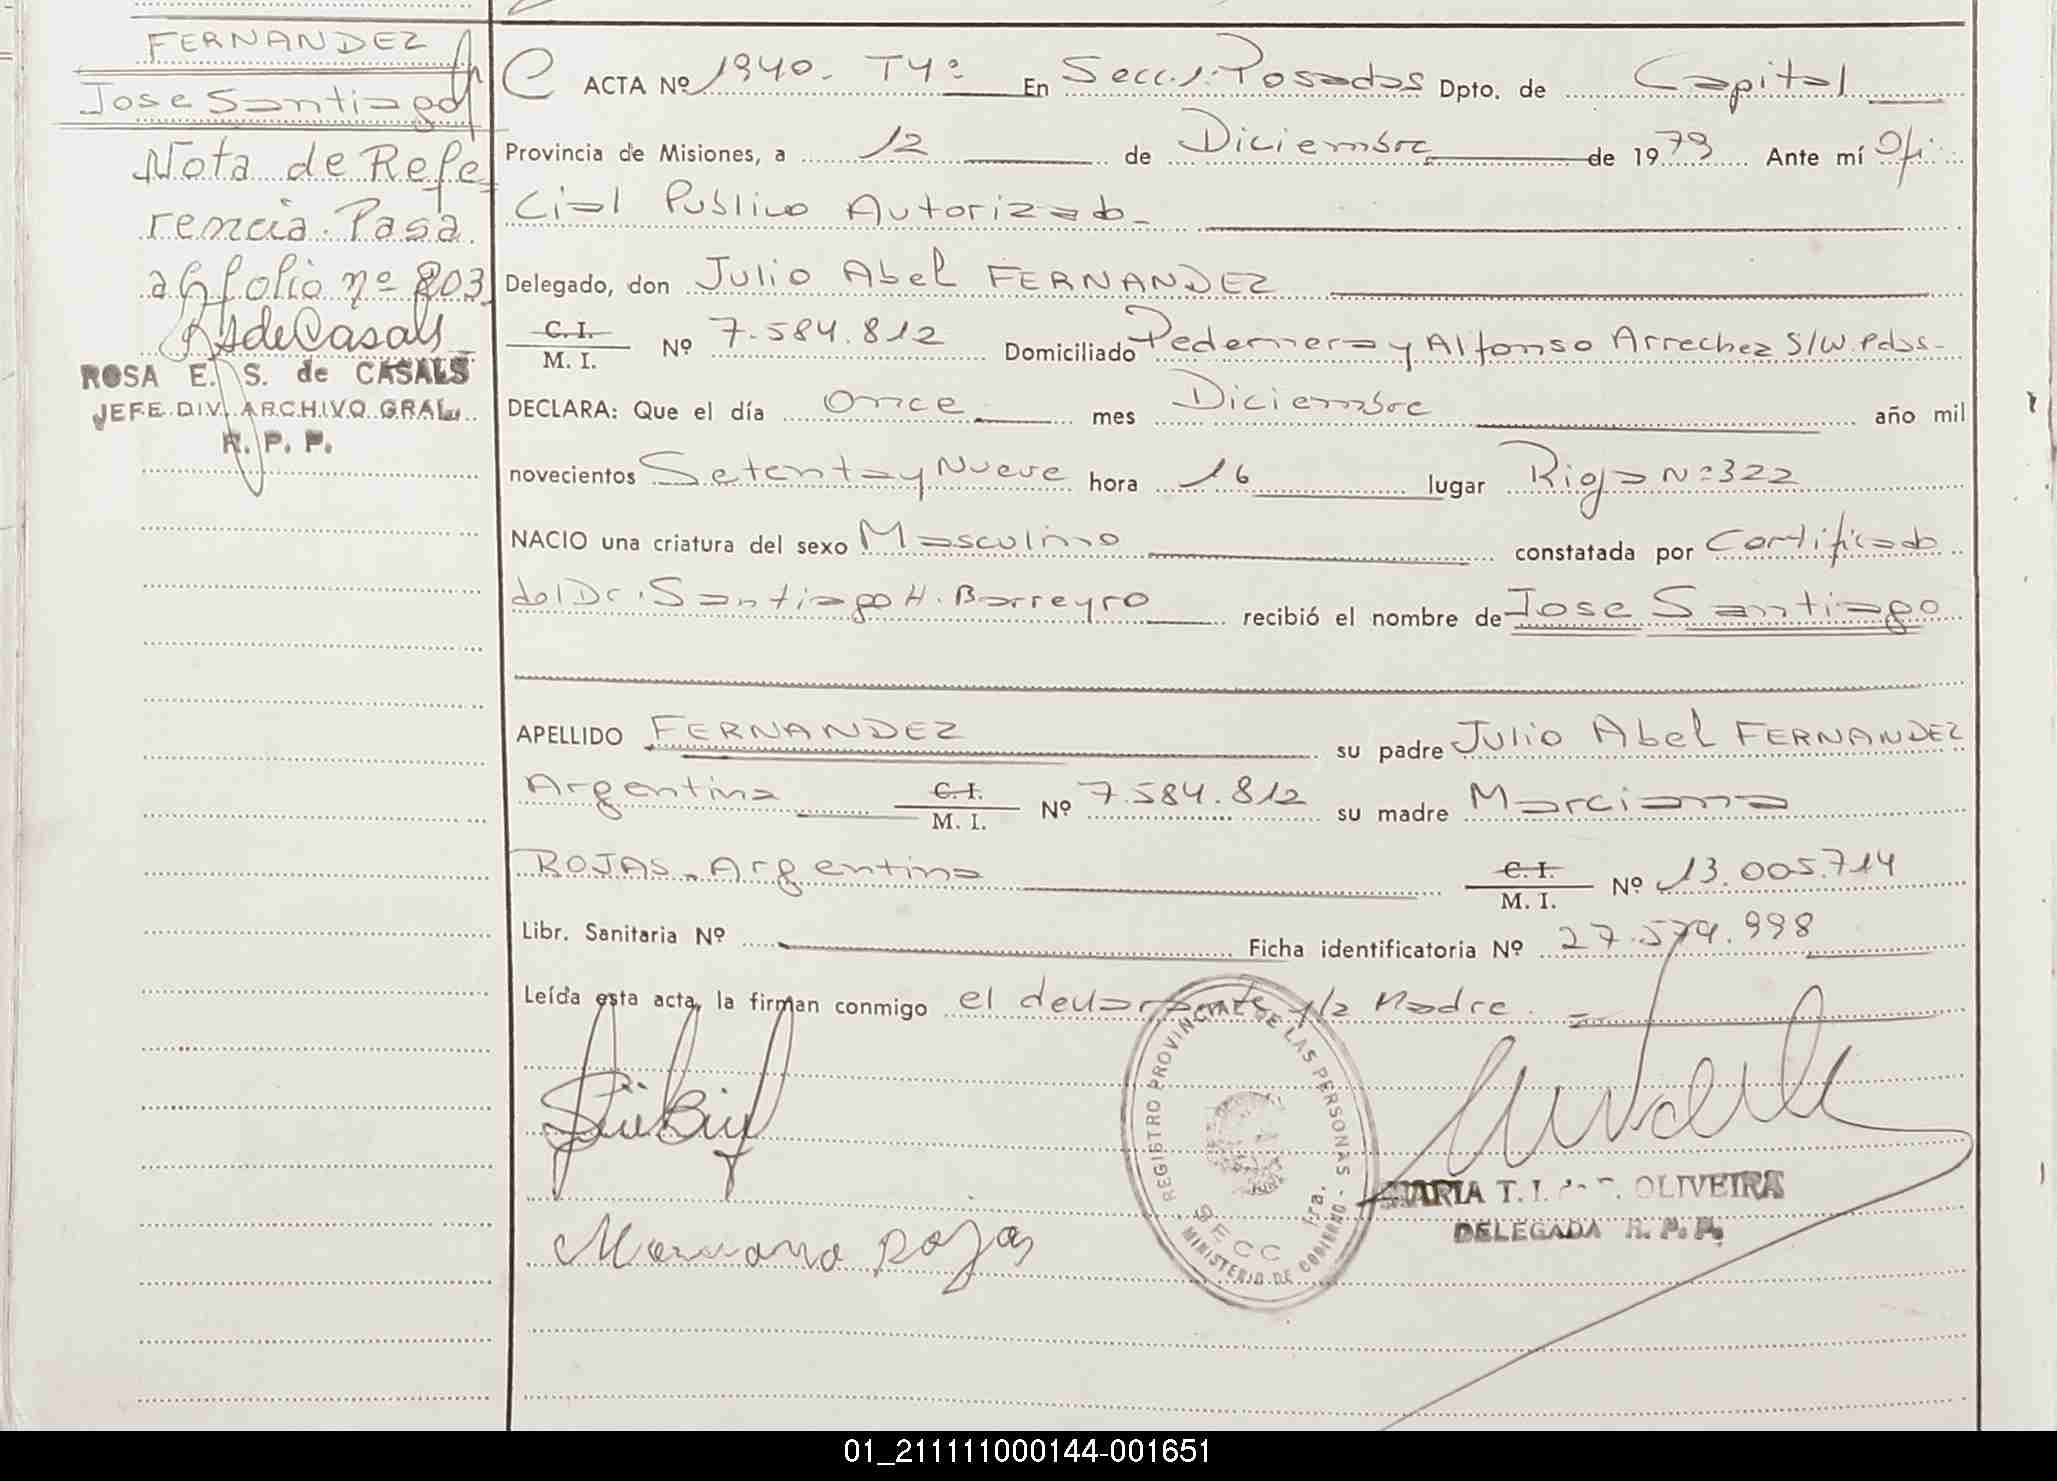 FERNANDEZ
Jose Santiago
Nota de Refe
rencia. Pasa
al folio nº 803
RSdeCasals
ROSA E. S. de CASALS
JEFE DIV. ARCHIVO GRAL.
R. P. P.
ACTA Nº 1940. T4º En Secc. 1. Posadas Dpto. de Capital
Provincia de Misiones, a 12 de Diciembre de 1979 Ante mí Ofi
cial Publico Autorizado
Delegado, don Julio Abel FERNANDEZ
C. I.
M. I. Nº 7.584.812 Domiciliado Pedernera y Alfonso Arrechez S/W. Pdas
DECLARA: Que el día once mes Diciembre año mil
novecientos Setenta y Nueve hora 16 lugar Rioja Nº 322
NACIO una criatura del sexo Masculino constatada por Certificado
del Dr. Santiago H. Barreyro recibió el nombre de Jose Santiago
APELLIDO FERNANDEZ su padre Julio Abel FERNANDEZ
Argentina C. I.
M. I. Nº 7.584.812 su madre Marciana
ROJAS. Argentina C. I.
M. I. Nº 13.005.714
Libr. Sanitaria Nº Ficha identificatoria Nº 27.579.998
Leída esta acta, la firman conmigo el declarante y la Madre.
REGISTRO PROVINCIAL DE LAS PERSONAS
MINISTERIO DE GOBIERNO
SECC 1ra.
MARIA T. I. OLIVEIRA
DELEGADA R. P. P.
Marciana Rojas
01_211111000144-001651